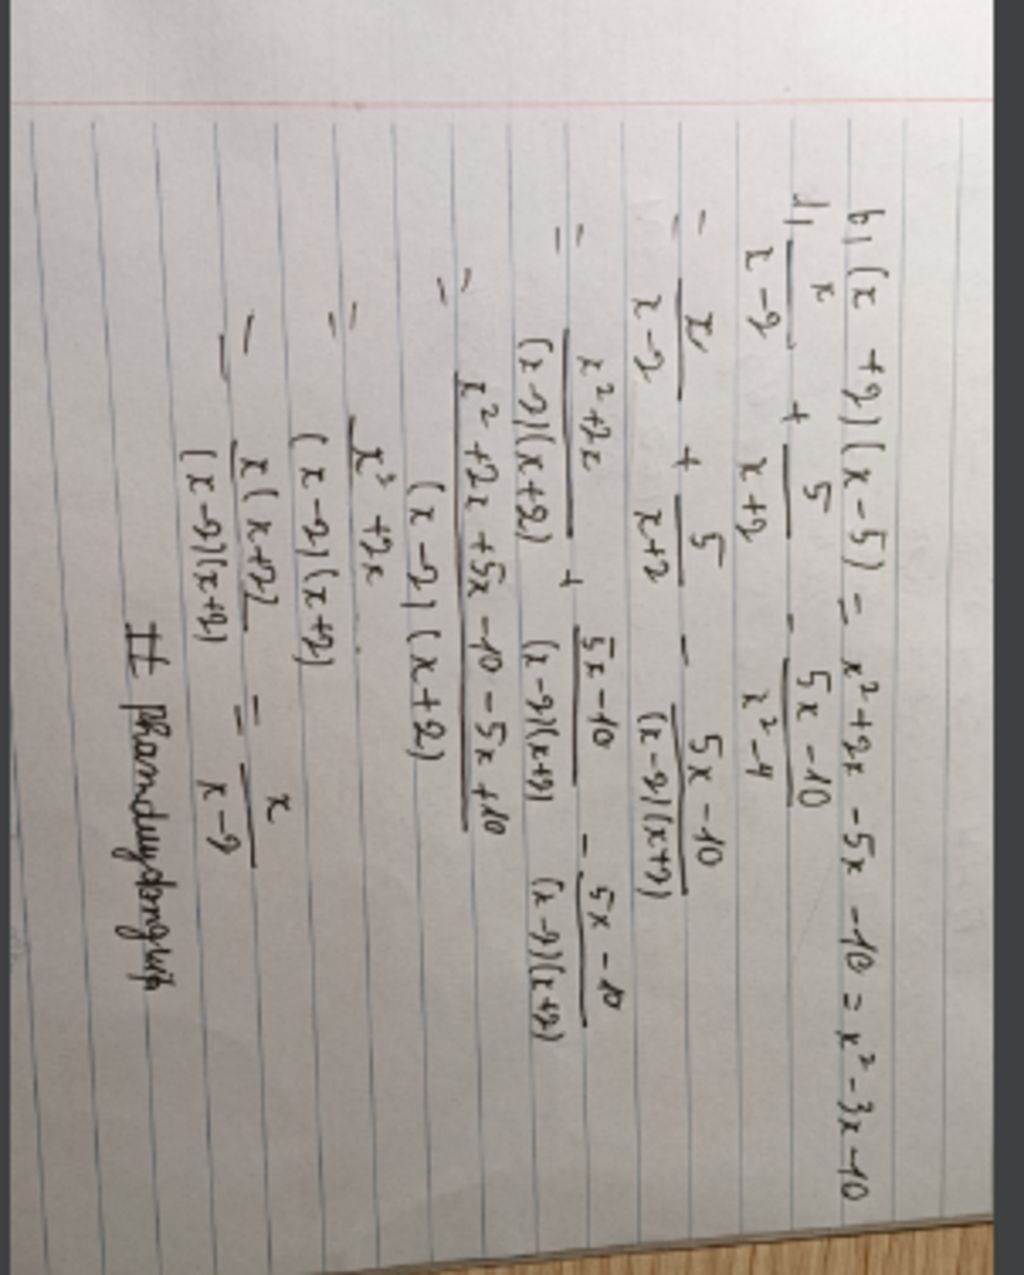 b, (x + 2)(x - 5) = x² + 2x - 5x - 10 = x² - 3x - 10
1, x/(x - 2) + 5/(x + 2) - (5x - 10)/(x² - 4)
= x/(x - 2) + 5/(x + 2) - (5x - 10)/((x - 2)(x + 2))
= (x² + 2x)/((x - 2)(x + 2)) + (5x - 10)/((x - 2)(x + 2)) - (5x - 10)/((x - 2)(x + 2))
= (x² + 2x + 5x - 10 - 5x + 10)/((x - 2)(x + 2))
= (x² + 2x)/((x - 2)(x + 2))
= x(x + 2)/((x - 2)(x + 2)) = x/(x - 2)